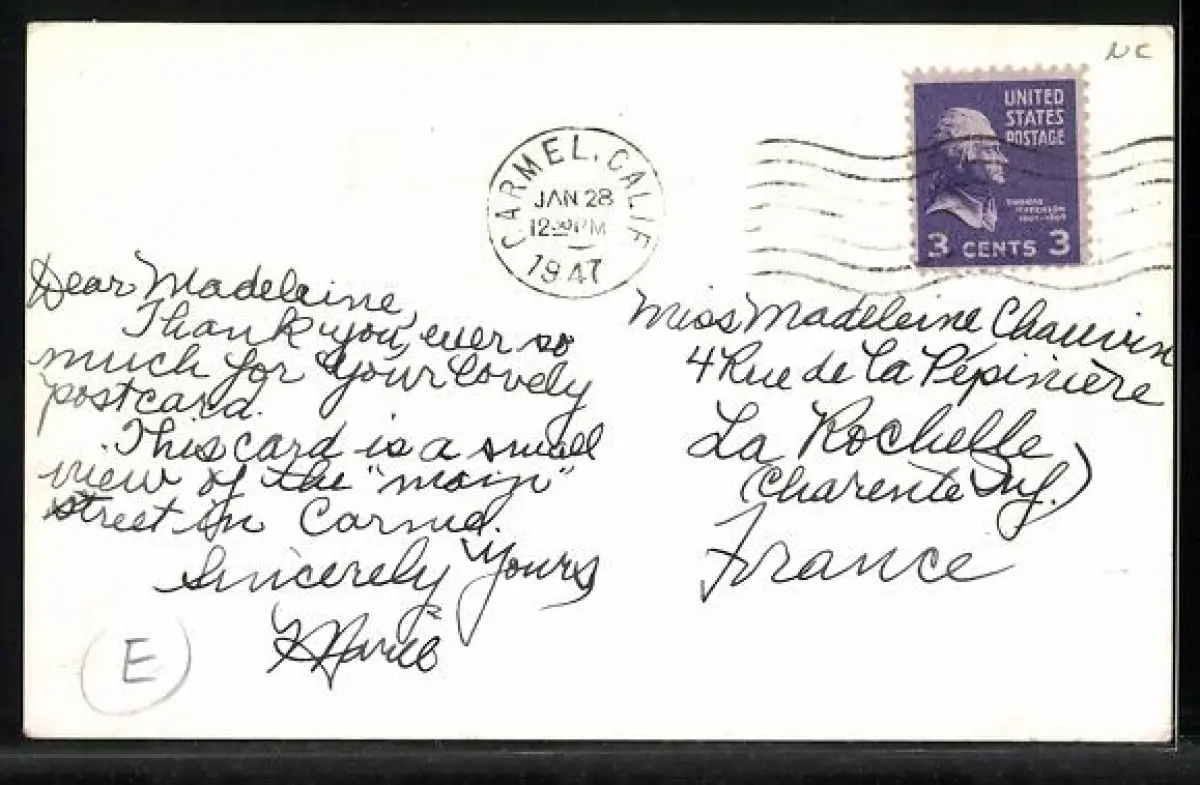 NC
UNITED
STATES
POSTAGE
THOMAS
JEFFERSON
1801-1809
3 CENTS 3
CARMEL, CALIF
JAN 28
12 30 PM
1947
Dear Madeleine,
Thank you, ever so
much for your lovely
postcard.
This card is a small
view of the "main"
street in Carmel.
Sincerely Yours
Marie
E
Miss Madeleine Chauvin
4 Rue de La Pépinière
La Rochelle
(Charente Inf.)
France